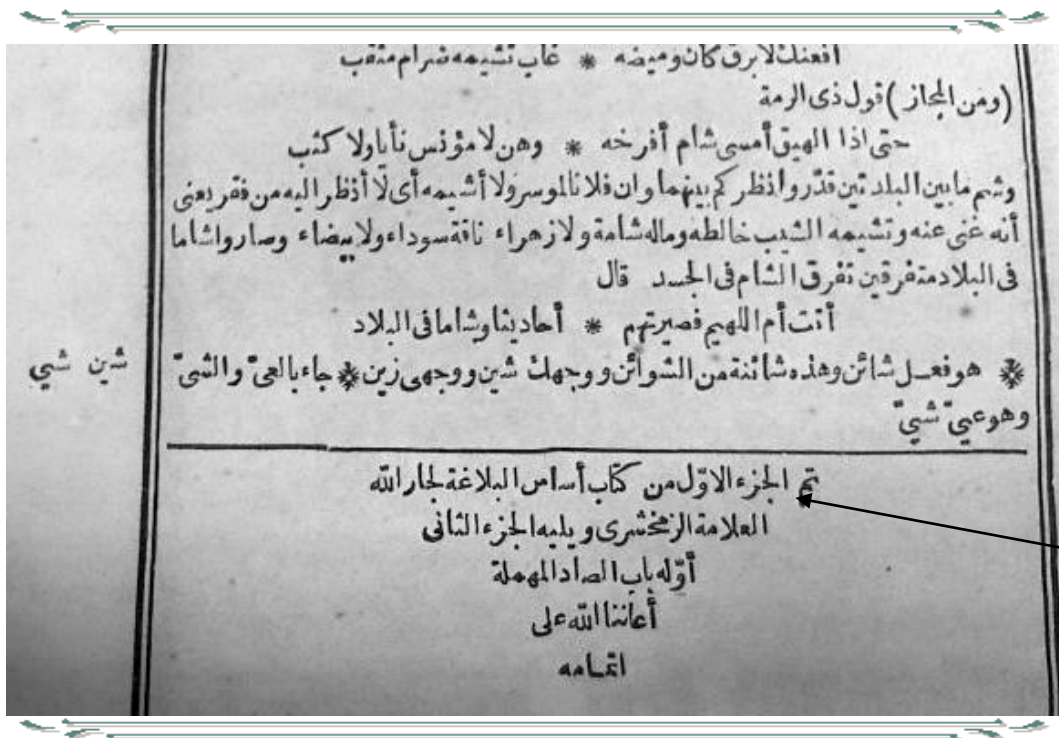 أفعنك لا برق كان وميضه * غاب تشيمه ضرام مثقب
(ومن المجاز) قول ذى الرمة
حتى اذا الهيق أمسى شام أفرخه * وهن لا مؤنس نأيا ولا كثب
وشم ما بين البلدتين قدّر وانظر كم بينهما وان فلانا لموسر ولا أشيمه أى لا أنظر اليه من فقر يعنى
أنه غنى عنه وتشيمه الشيب خالطه وماله شامة ولا زهراء ناقة سوداء ولا بيضاء وصاروا شاما
فى البلاد متفرقين تفرق الشام فى الجسد قال
أتت أم اللهيم فصيرتهم * أحاديثا وشاما فى البلاد
شين شيي * هو فعل شائن وهذه شائنة من الشوائن ووجهك شين ووجهى زين * جاء بالعىّ والشىّ
وهو عيىّ شيىّ
تم الجزء الاوّل من كتاب أساس البلاغة لجار الله
العلامة الزمخشرى ويليه الجزء الثانى
أوّله باب الصاد المهملة
أعاننا الله على
اتمامه